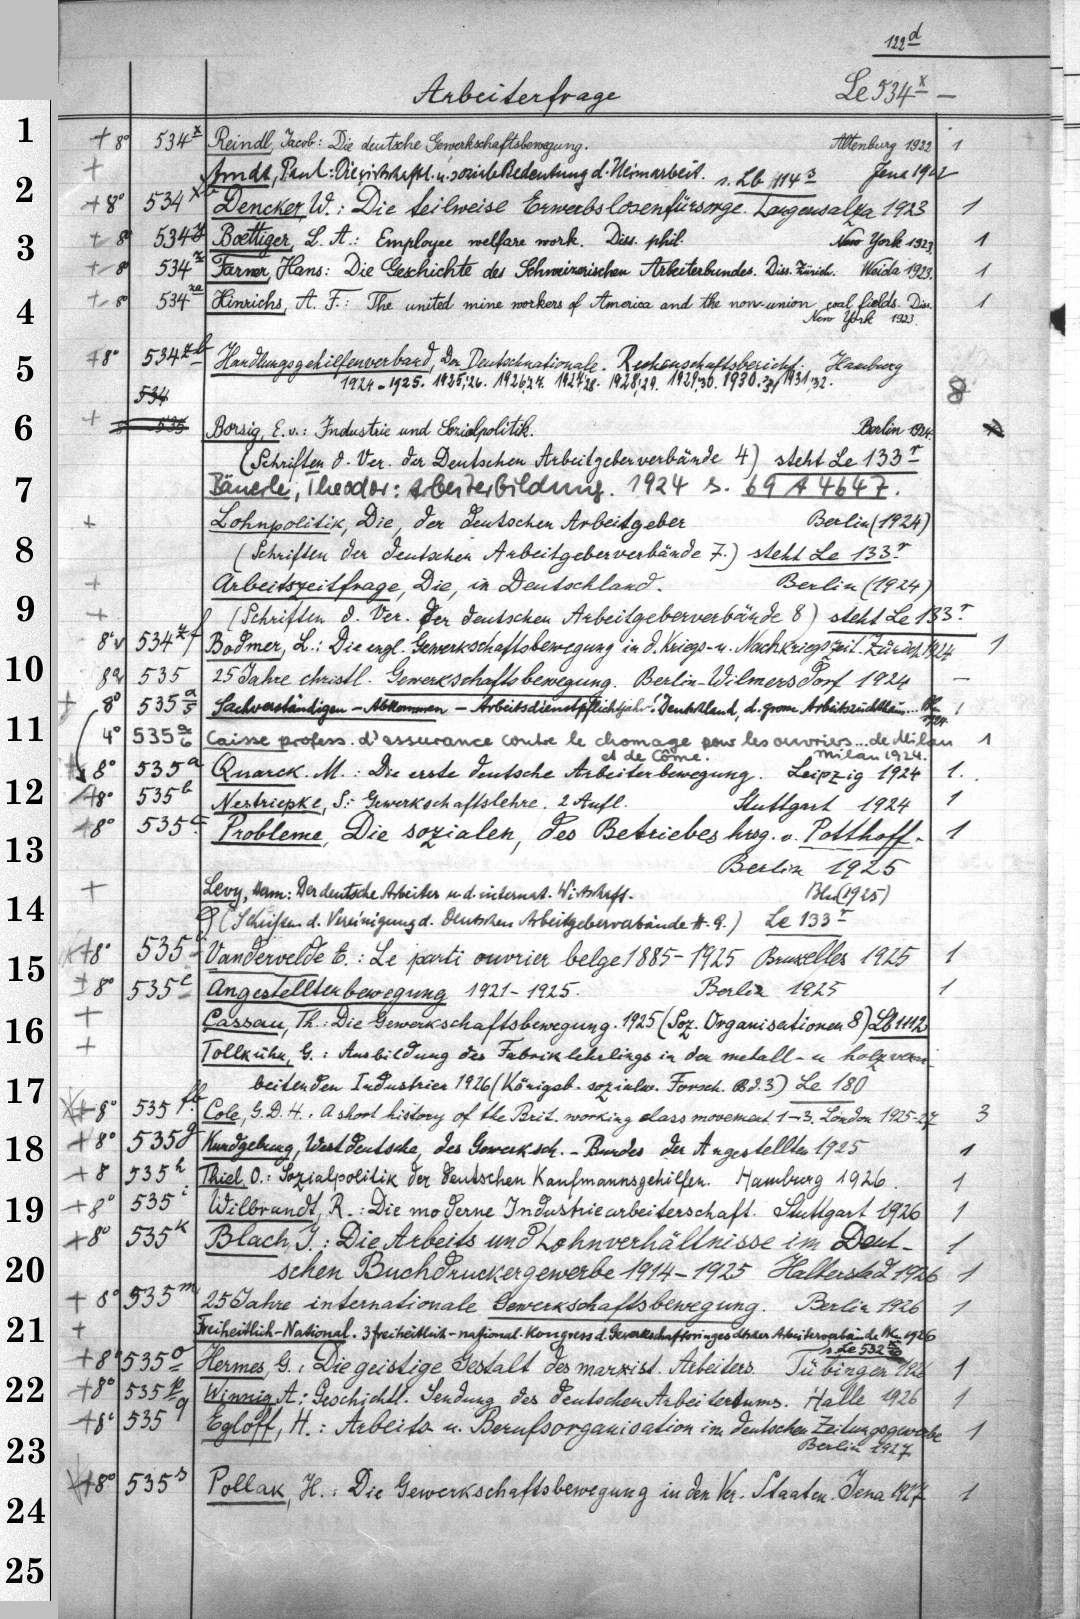 122d
Arbeiterfrage Le 534x —
1 + 8° 534x Reindl, Jacob: Die deutsche Gewerkschaftsbewegung. Altenburg 1922 1
+ Arndt, Paul: Die wirtschaftl. u. soziale Bedeutung d. Heimarbeit. s. Lb 114s Jena 1922
2 + 8° 534x Dencker W.: Die teilweise Erwerbslosenfürsorge. Langensalza 1923 1
3 + 8° 534y Boettiger, L. A.: Employee welfare work. Diss. phil. New York 1923. 1
+ 8° 534z Farner, Hans: Die Geschichte des Schweizerischen Arbeiterbundes. Diss. Zürich. Weida 1923. 1
4 + 8° 534za Hinrichs, A. F.: The united mine workers of America and the non-union coal fields. Diss. 1
New York 1923.
5 + 8° 534zb Handlungsgehilfenverband, Der Deutschnationale. Rechenschaftsbericht. Hamburg
1924-1925. 1925/26. 1926/27. 1927/28. 1928/29. 1929/30. 1930/31. 1931/32. 8
534
6 + 535 Borsig, E. v.: Industrie und Sozialpolitik. Berlin 1924.
(Schriften d. Ver. der Deutschen Arbeitgeberverbände 4) steht Le 133r
7 Bäuerle, Theodor: Arbeiterbildung. 1924 s. 69 A 4647.
+ Lohnpolitik, Die, der deutschen Arbeitgeber Berlin (1924)
8 (Schriften der deutschen Arbeitgeberverbände 7.) steht Le 133r
+ Arbeitszeitfrage, Die, in Deutschland. Berlin (1924)
9 + (Schriften d. Ver. der deutschen Arbeitgeberverbände 8) steht Le 133r
8° 534zf Bodmer, L.: Die engl. Gewerkschaftsbewegung in d. Kriegs- u. Nachkriegszeit. Zürich 1924 1
10 8° 535 25 Jahre christl. Gewerkschaftsbewegung. Berlin-Wilmersdorf 1924 —
+ 8° 535a/5 Sachverständigen-Abkommen - Arbeitsdienstpflichtjahr! Deutschland, d. grosse 1
11 4° 535a/6 Caisse profess. d'assurance contre le chomage pour les ouvriers... de Milan 1
et de Côme. Milan 1924.
+ 8° 535a Quarck. M.: Die erste deutsche Arbeiterbewegung. Leipzig 1924 1.
12 + 8° 535b Nestriepke, S: Gewerkschaftslehre. 2 Aufl. Stuttgart 1924 1
+ 8° 535c Probleme, Die sozialen, des Betriebes hrsg. v. Potthoff. 1
13 Berlin 1925
+ Levy, Herm: Der deutsche Arbeiter u. d. internat. Wirtschaft. Bln (1925)
14 (Schriften d. Vereinigung d. Deutschen Arbeitgeberverbände H. 9.) Le 133r
+ 8° 535d Vandervelde E.: Le parti ouvrier belge 1885-1925 Bruxelles 1925 1
15 + 8° 535e Angestelltenbewegung 1921-1925. Berlin 1925 1
16 + Cassau, Th.: Die Gewerkschaftsbewegung. 1925 (Soz. Organisationen 8) Lb 1112
+ Tollkühn, G.: Ausbildung des Fabriklehrlings in der metall- u holzverar-
17 beitenden Industrien 1926 (Königsb. sozialw. Forsch. Bd. 3) Le 180
+ 8° 535 fb Cole, G.D.H., A short history of the Brit. working class movement 1-3. London 1925-27 3
18 + 8° 535g Kundgebung, Westdeutsche, des Gewerksch.-Bundes der Angestellten 1925 1
+ 8 535h Thiel, O.: Sozialpolitik der deutschen Kaufmannsgehilfen. Hamburg 1926. 1
19 + 8° 535i Wilbrandt, R.: Die moderne Industriearbeiterschaft. Stuttgart 1926 1
+ 8° 535k Blach, J.: Die Arbeits und Lohnverhältnisse im Deut- 1
20 schen Buchdruckergewerbe 1914-1925 Halberstad 1926 1
+ 8° 535m 25 Jahre internationale Gewerkschaftsbewegung. Berlin 1926 1
21 + Freiheitlich-National. 3 freiheitlich-national. Kongress d. Gewerkschaftsringes dtscher Arbeiterverbände Bln. 1926
s. Le 532
+ 8° 535o Hermes, G.: Die geistige Gestalt des marxist. Arbeiters. Tübingen 1926 1
22 + 8° 535p Winnig A: Geschichtl. Sendung des deutschen Arbeitertums. Halle 1926 1
+ 8° 535q Egloff, H.: Arbeits u. Berufsorganisation im deutschen Zeitungsgewerbe 1
23 Berlin 1927
+ 8° 535s Pollak, H.: Die Gewerkschaftsbewegung in den Ver. Staaten. Jena 1927 1
24
25